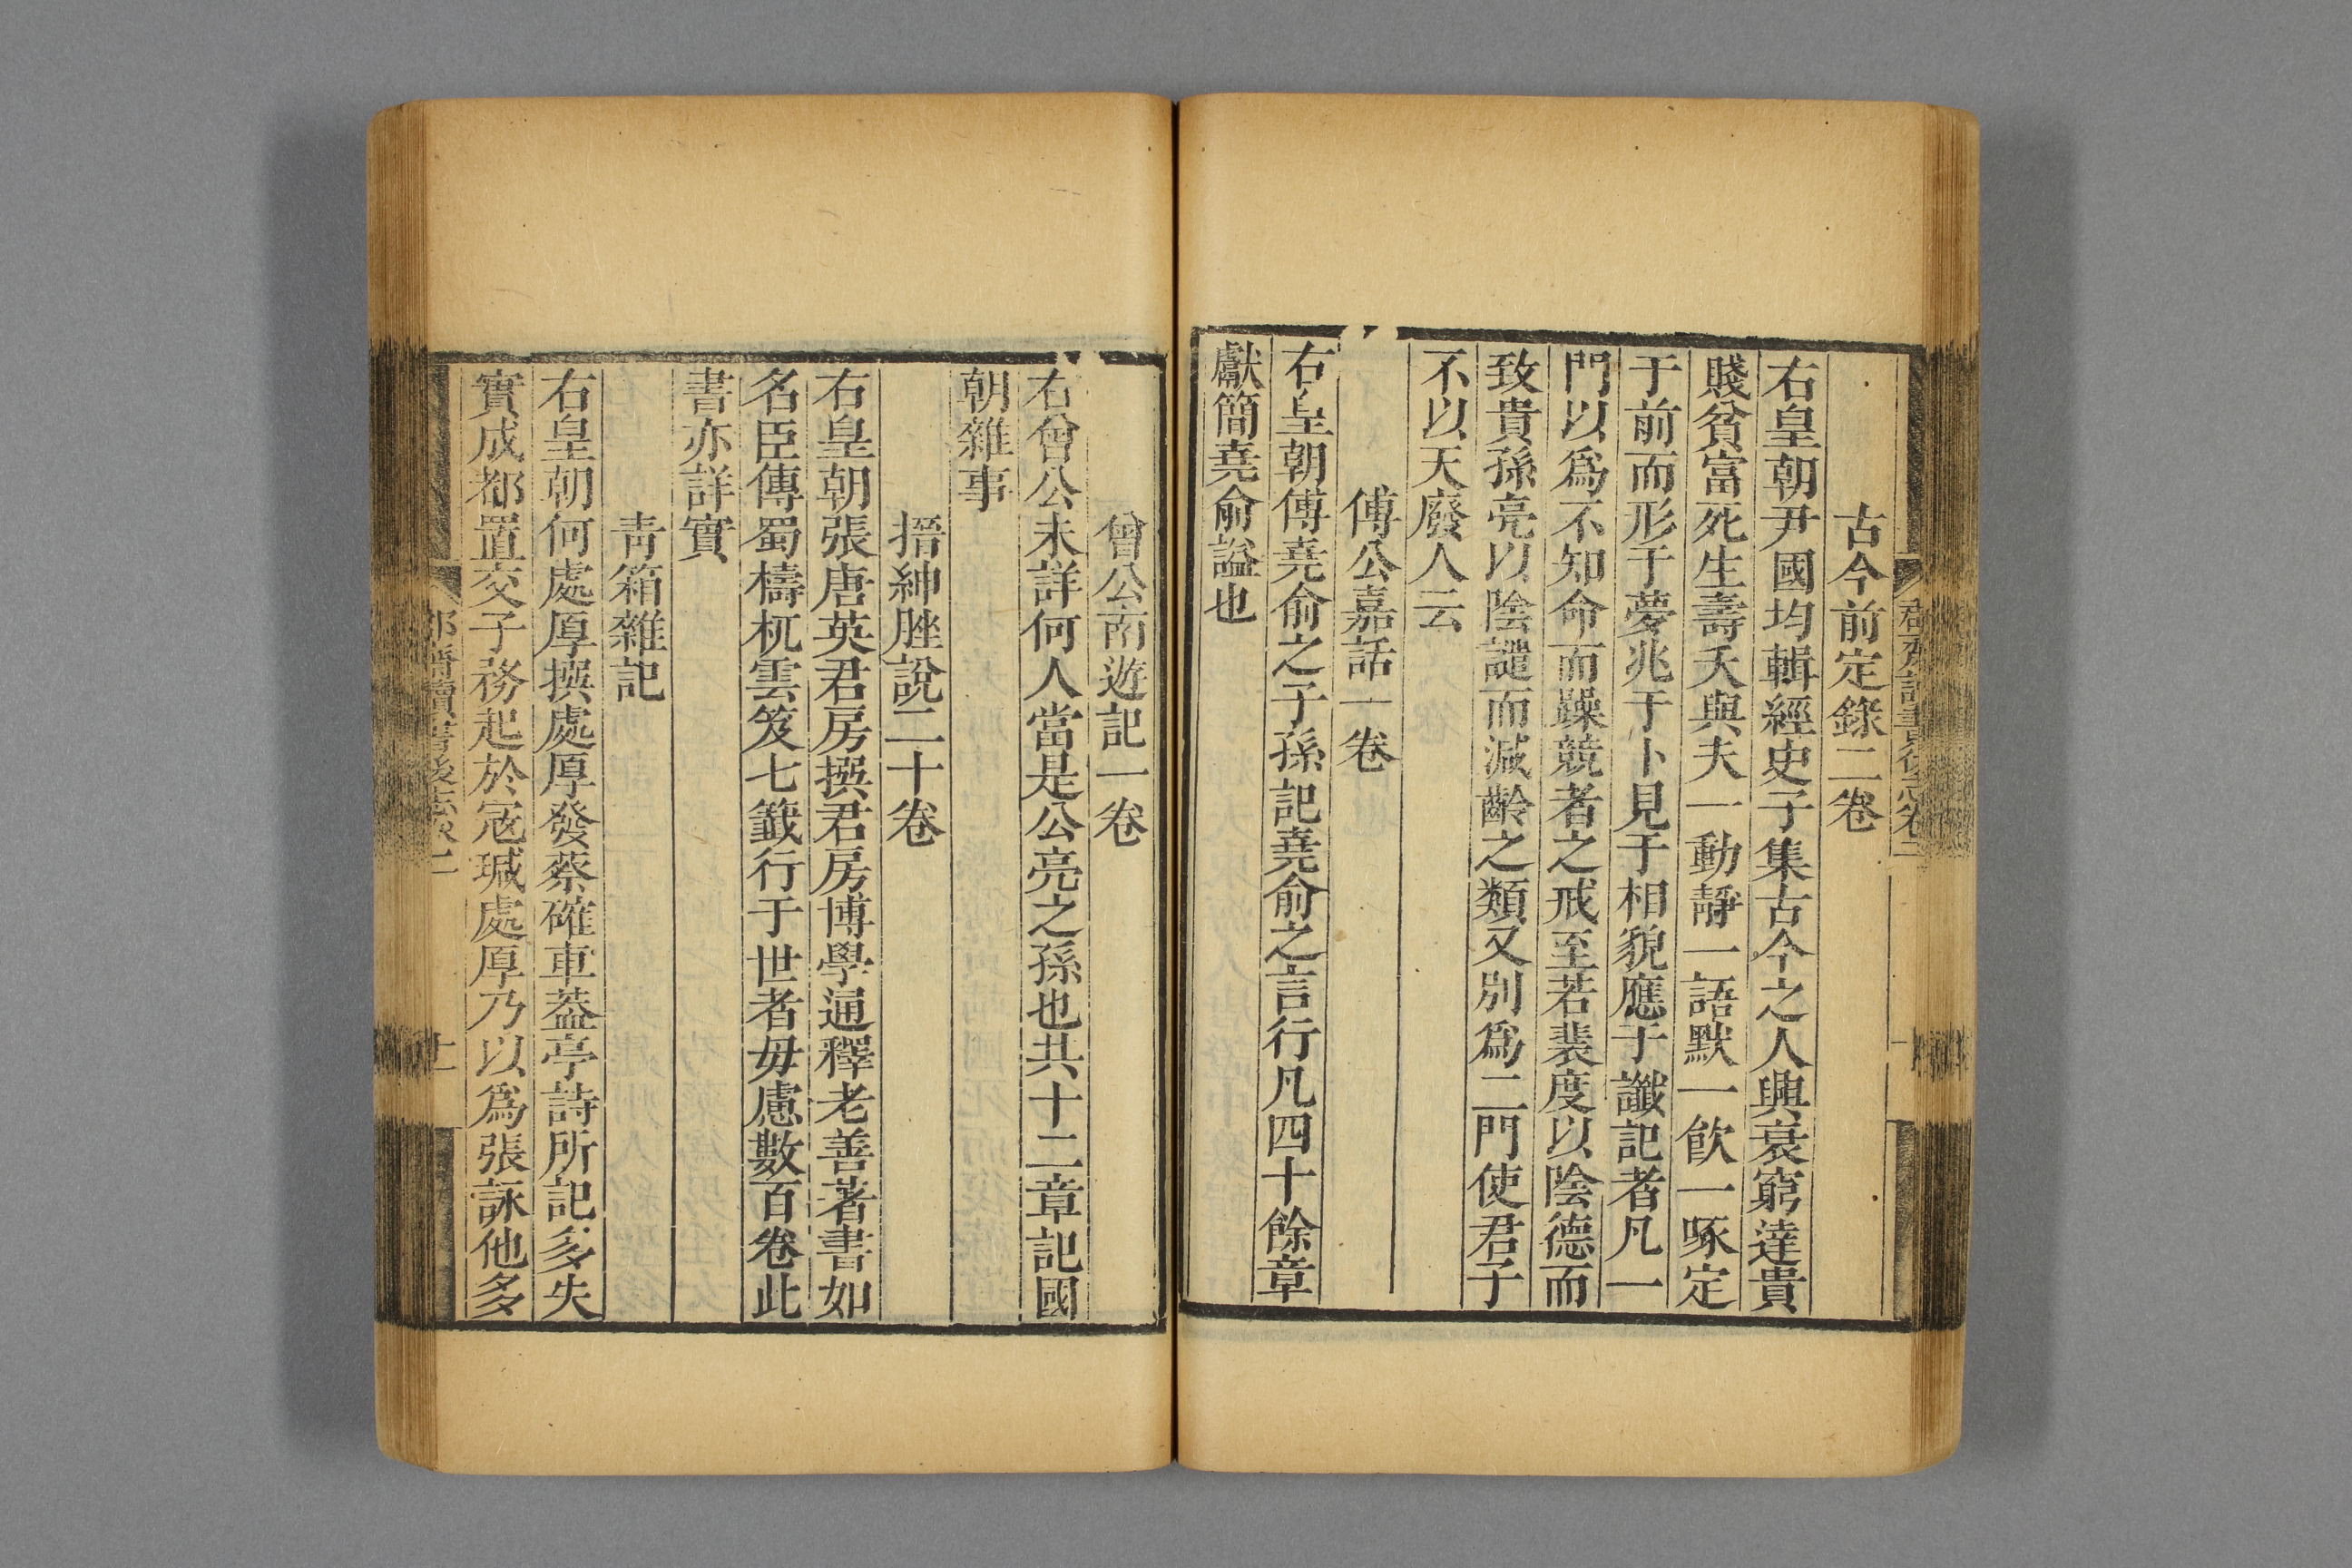 古今前定錄二卷
右皇朝尹國均輯經史子集古今之人興衰窮達貴
賤貧富死生壽夭與夫一動靜一語默一飮一啄定
于前而形于夢兆于卜見于相貌應于讖記者凡一
門以爲不知命而躁競者之戒至若裴度以陰德而
致貴孫亮以陰譴而減齡之類又別爲二門使君子
不以天廢人云
傅公嘉話一卷
右皇朝傅堯俞之子孫記堯俞之言行凡四十餘章
獻簡堯俞謚也
曾公南遊記一卷
右曾公未詳何人當是公亮之孫也共十二章記國
朝雜事
搢紳脞說二十卷
右皇朝張唐英君房撰君房博學通釋老善著書如
名臣傳蜀檮杌雲笈七籤行于世者毋慮數百卷此
書亦詳實
靑箱雜記
右皇朝何處厚撰處厚發蔡確車葢亭詩所記多失
實成都置交子務起於宼瑊處厚乃以爲張詠他多